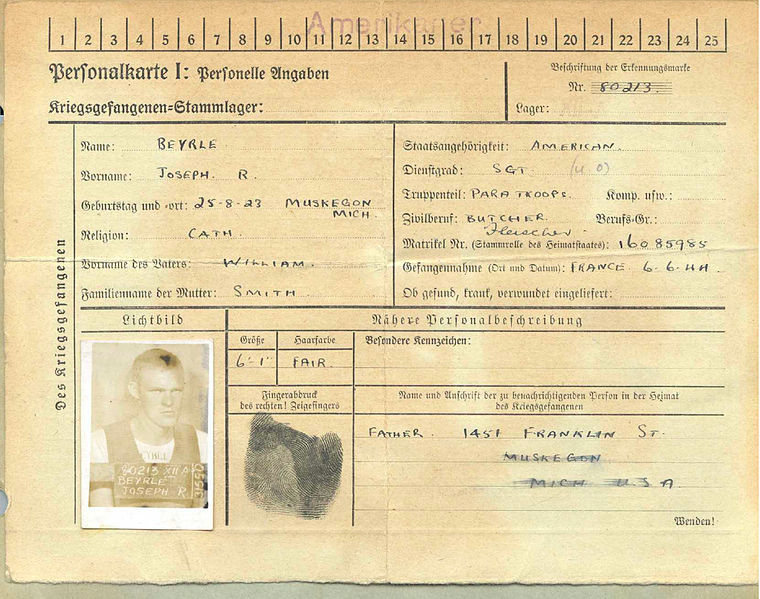 Amerikaner
1 2 3 4 5 6 7 8 9 10 11 12 13 14 15 16 17 18 19 20 21 22 23 24 25
Personalkarte I: Personelle Angaben
Beschriftung der Erkennungsmarke
Nr. 80213
Kriegsgefangenen-Stammlager:
Lager:
Des Kriegsgefangenen
Name: BEYRLE
Vorname: JOSEPH. R.
Geburtstag und -ort: 25-8-23 MUSKEGON
MICH.
Religion: CATH.
Vorname des Vaters: WILLIAM.
Familienname der Mutter: SMITH
Staatsangehörigkeit: AMERICAN.
Dienstgrad: SGT. (U O)
Truppenteil: PARATROOPS. Komp. usw.:
Zivilberuf: BUTCHER. Berufs-Gr.:
Fleischer
Matrikel Nr. (Stammrolle des Heimatstaates): 16085985
Gefangennahme (Ort und Datum): FRANCE. 6-6-44.
Ob gesund, krank, verwundet eingeliefert:
Lichtbild
Nähere Personalbeschreibung
Größe
Haarfarbe
Besondere Kennzeichen:
6'-1"
FAIR.
Fingerabdruck
des rechten! Zeigefingers
Name und Anschrift der zu benachrichtigenden Person in der Heimat
des Kriegsgefangenen
FATHER. 1451 FRANKLIN ST.
MUSKEGON
MICH U S A.
Wenden!
80213 XII A
BEYRLE
JOSEPH R